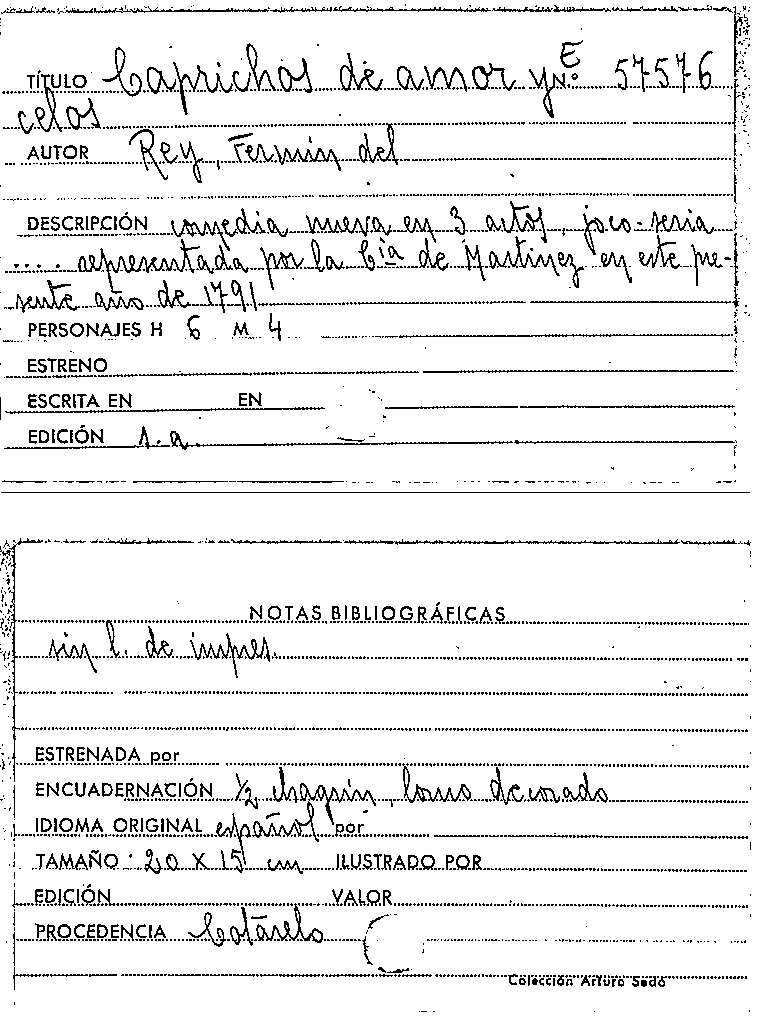 TÍTULO Caprichos de amor y E Nº 57576
celos
AUTOR Rey, Fermin del
DESCRIPCIÓN comedia nueva en 3 actos, joco-seria
.... representada por la Cia de Martinez en este pre-
sente año de 1791
PERSONAJES H 6 M 4
ESTRENO
ESCRITA EN EN
EDICIÓN s.a.
NOTAS BIBLIOGRÁFICAS
sin l. de impres.
ESTRENADA por
ENCUADERNACIÓN 1/2 chagrin, lomo decorado
IDIOMA ORIGINAL español por
TAMAÑO 20 X 15 cm ILUSTRADO POR
EDICIÓN VALOR
PROCEDENCIA Cotarelo
Colección Arturo Sedó